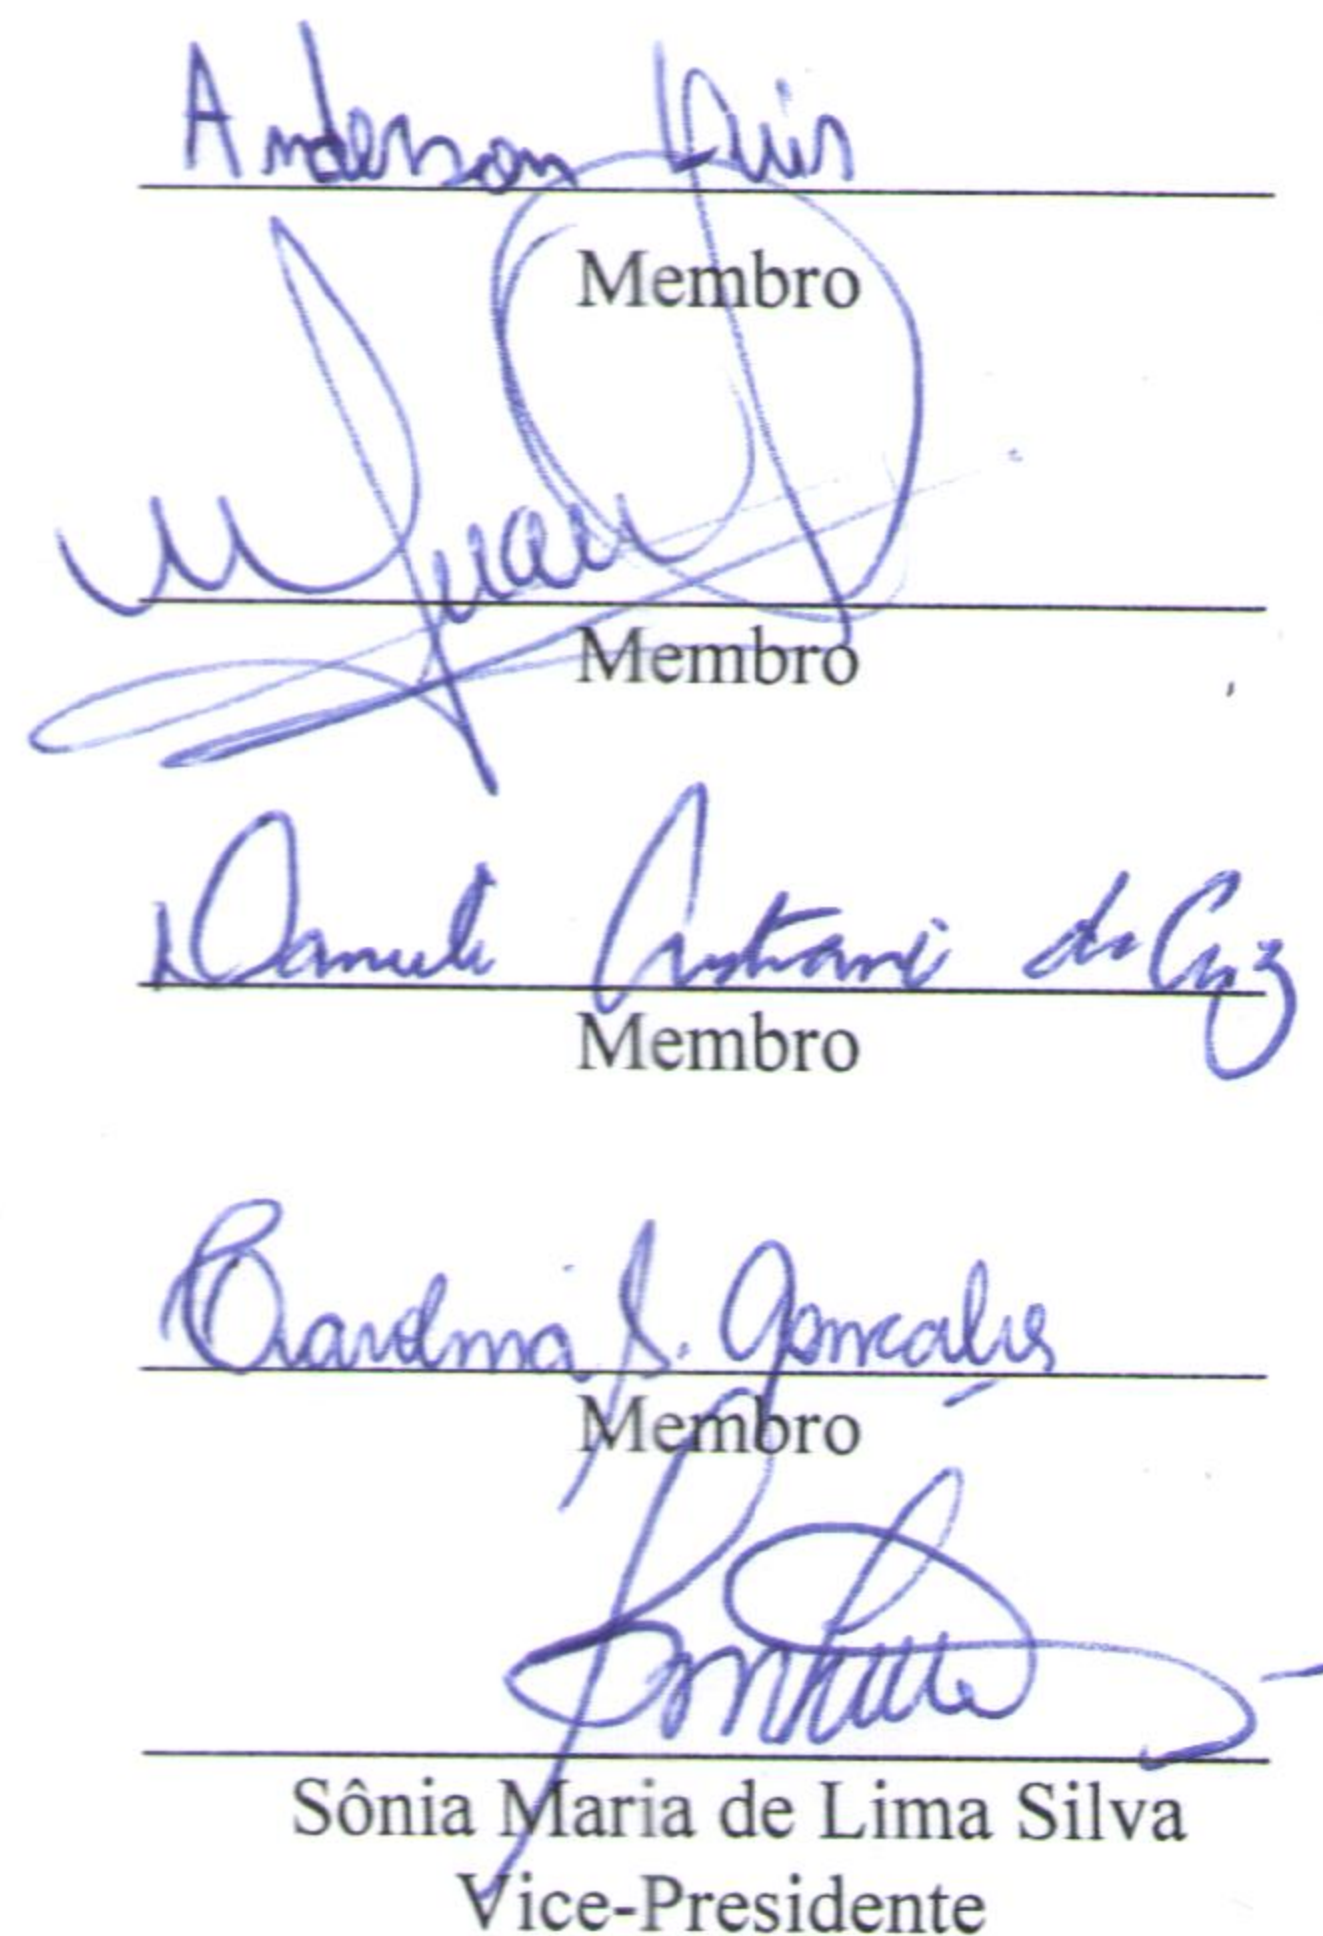 Anderson Luis
Membro
Membro
Daniele Cristiane da Cruz
Membro
S. Gonçalves
Membro
Sônia Maria de Lima Silva
Vice-Presidente